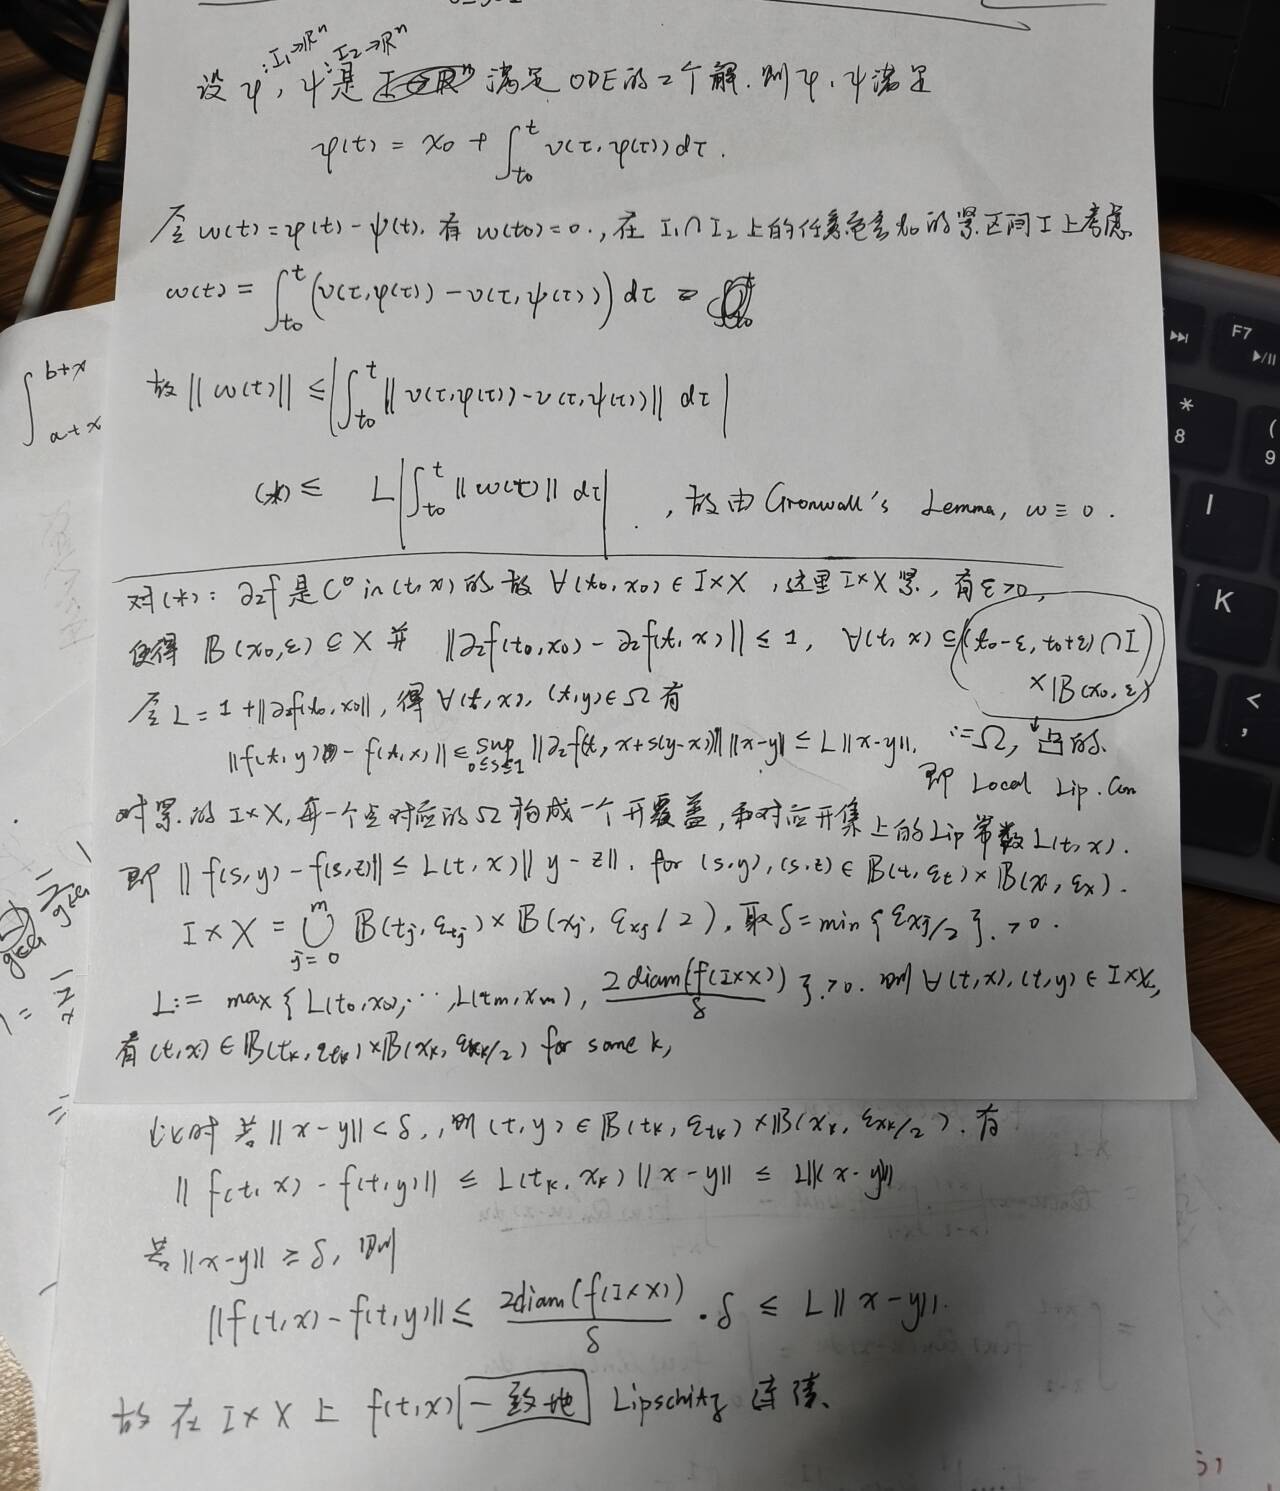 设 φ:I₁→ℝⁿ, ψ:I₂→ℝⁿ 是 满足 ODE的2个解. 则 φ, ψ 满足
φ(t) = x₀ + ∫_{t₀}^{t} v(τ, φ(τ)) dτ.
令 w(t) = φ(t) - ψ(t). 有 w(t₀) = 0., 在 I₁∩I₂ 上的任意包含 t₀ 的紧区间 I 上考虑
w(t) = ∫_{t₀}^{t} (v(τ, φ(τ)) - v(τ, ψ(τ))) dτ =
故 ||w(t)|| ≤ |∫_{t₀}^{t} ||v(τ, φ(τ)) - v(τ, ψ(τ))|| dτ|
(*) ≤ L |∫_{t₀}^{t} ||w(τ)|| dτ|. , 故由 Gronwall's Lemma, w ≡ 0.
对(*): ∂₂f 是 C⁰ in (t, x) 的 故 ∀(t₀, x₀) ∈ I×X, 这里 I×X 紧, 有 ε>0,
使得 𝔹(x₀, ε) ⊆ X 并 ||∂₂f(t₀, x₀) - ∂₂f(t, x)|| ≤ 1, ∀(t, x) ⊆ (t₀-ε, t₀+ε)∩I
×𝔹(x₀, ε)
令 L = 1 + ||∂₂f(t₀, x₀)||, 得 ∀(t, x), (t, y) ∈ Ω 有
:=Ω, 凸的.
||f(t, y) - f(t, x)|| ≤ sup_{0≤s≤1} ||∂₂f(t, x+s(y-x))|| ||x-y|| ≤ L||x-y||.
即 Local Lip. Con
对紧的 I×X, 每一个点对应的 Ω 构成一个开覆盖, 和对应开集上的 Lip 常数 L(t, x).
即 ||f(s, y) - f(s, z)|| ≤ L(t, x) ||y - z||. for (s, y), (s, z) ∈ 𝔹(t, ε_t) × 𝔹(x, ε_x).
I×X = ⋃_{j=0}^{m} 𝔹(t_j, ε_{t_j}) × 𝔹(x_j, ε_{x_j}/2), 取 δ = min{ε_{x_j}/2} > 0.
L := max{L(t₀, x₀), ⋯, L(t_m, x_m), 2diam(f(I×X))/δ} > 0. 则 ∀(t, x), (t, y) ∈ I×X,
有 (t, x) ∈ 𝔹(t_k, ε_{t_k}) × 𝔹(x_k, ε_{x_k}/2) for some k,
此时 若 ||x-y|| < δ, 则 (t, y) ∈ 𝔹(t_k, ε_{t_k}) × 𝔹(x_k, ε_{x_k}/2). 有
||f(t, x) - f(t, y)|| ≤ L(t_k, x_k) ||x-y|| ≤ L||x-y||
若 ||x-y|| ≥ δ, 则
||f(t, x) - f(t, y)|| ≤ 2diam(f(I×X))/δ · δ ≤ L||x-y||.
故 在 I×X 上 f(t, x) 一致地 Lipschitz 连续.
∫_{a+x}^{b+x}
F7
*
8
(
9
I
K
<
,